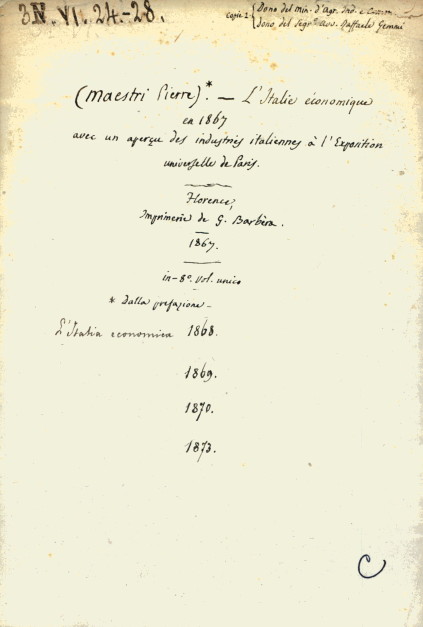 3N. VI. 24-28.
copie 2 { Dono del Min. d'agr. Ind. e Comm.
dono del segr. avv. Raffaele
(Maestri Pierre).* — L'Italie économique
en 1867
avec un aperçu des industries italiennes à l'Exposition
universelle de Paris.
Florence,
Imprimerie de G. Barbèra.
1867.
in-8°. vol. unico
* dalla prefazione -
L'Italia economica 1868.
1869.
1870.
1873.
C